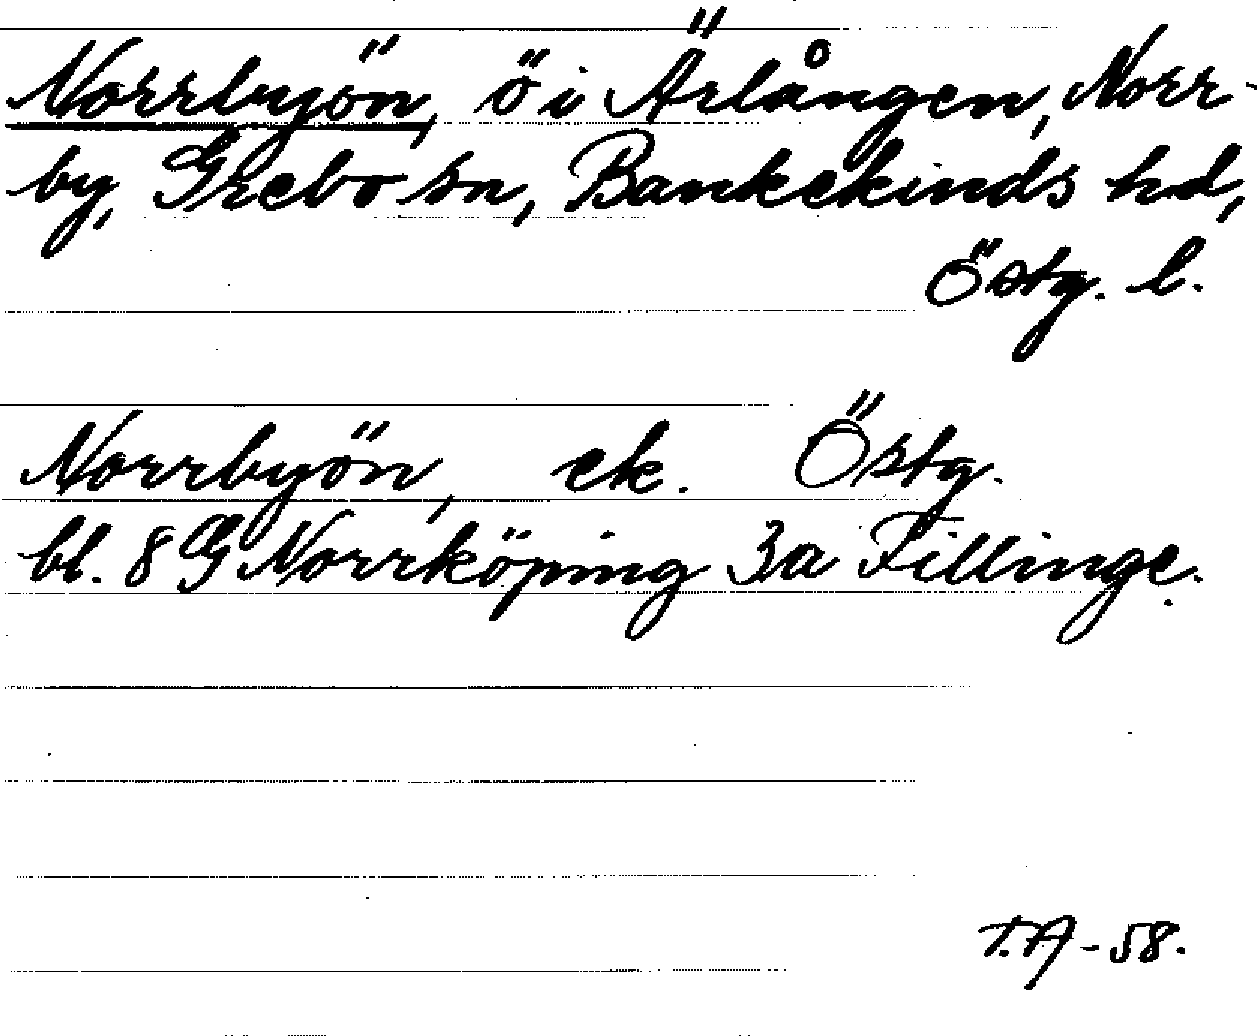 Norrbyön, ö i Ärlången, Norr-
by, Grebo sn, Bankekinds hd,
Östg. l.
Norrbyön, ek. Östg.
bl. 8 G Norrköping 3a Fillinge.
T.A-58.